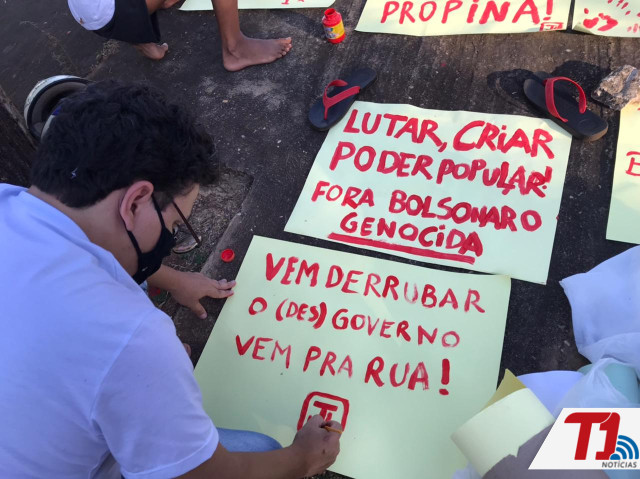 PROPINA!
LUTAR, CRIAR
PODER POPULAR!
FORA BOLSONARO
GENOCIDA
VEM DERRUBAR
O (DES) GOVERNO
VEM PRA RUA!
T1
NOTÍCIAS